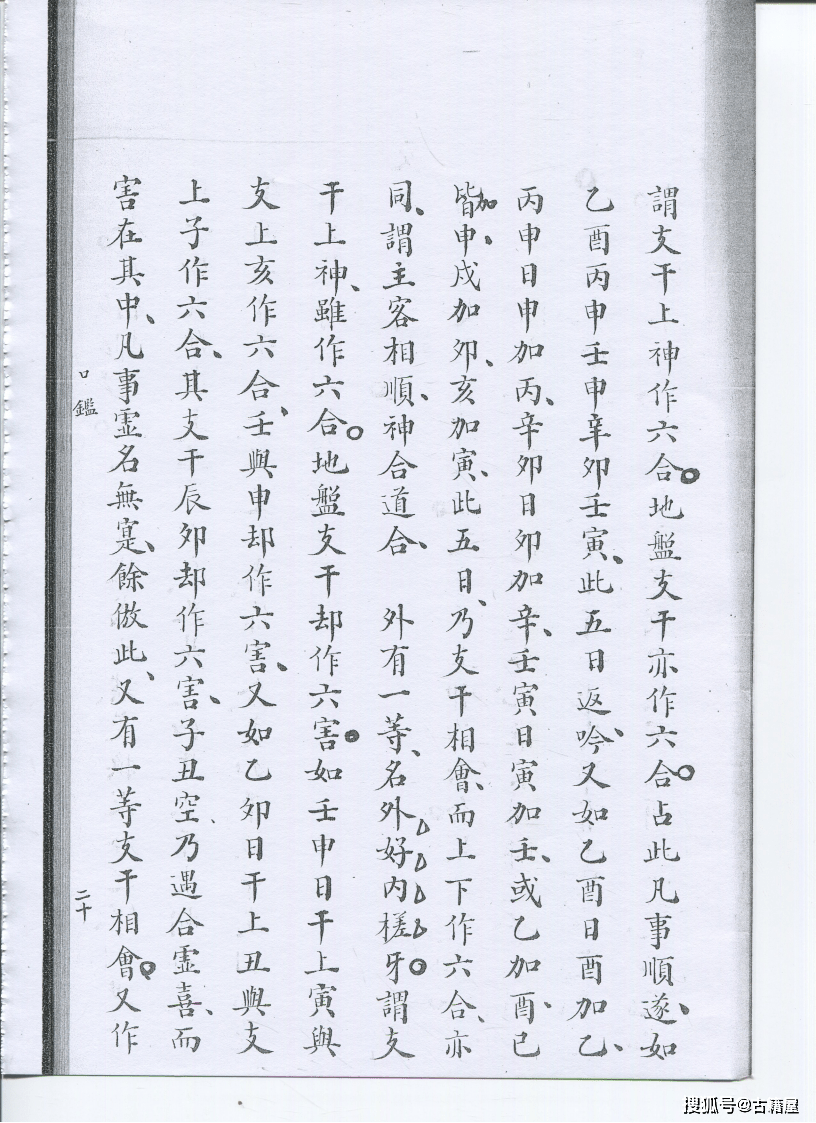 謂支干上神作六合。地盤支干亦作六合。占此凡事順遂、如
乙酉丙申壬申辛卯壬寅、此五日返吟、又如乙酉日酉加乙、
丙申日申加丙、辛卯日卯加辛、壬寅日寅加壬、或乙加酉、已
皆加、申、戌加卯、亥加寅、此五日、乃支干相會、而上下作六合、亦
同、謂主客相順、神合道合、 外有一等、名外好内槎牙。謂支
干上神、雖作六合。地盤支干却作六害。如壬申日干上寅與
支上亥作六合、壬與申却作六害、又如乙卯日干上丑與支
上子作六合、其支干辰卯却作六害、子丑空、乃遇合虛喜、而
害在其中、凡事虛名無寔、餘倣此、又有一等支干相會。又作
口鑑
二十
搜狐号@古籍屋